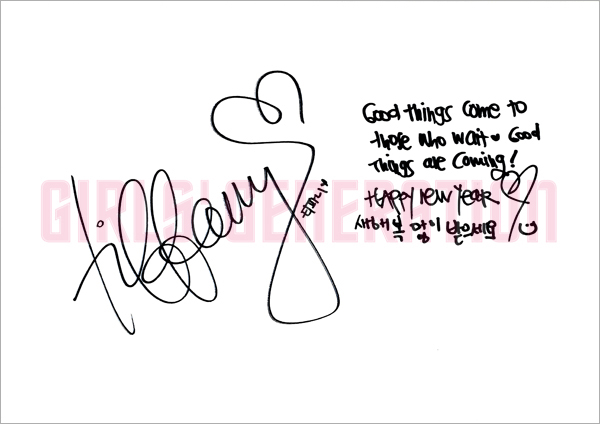 Tiffany
티파니♥
Good things come to
those who wait♥ Good
things are coming!
HAPPY NEW YEAR♡
새해 복 많이 받으세요 :)
GIRLS' GENERATION